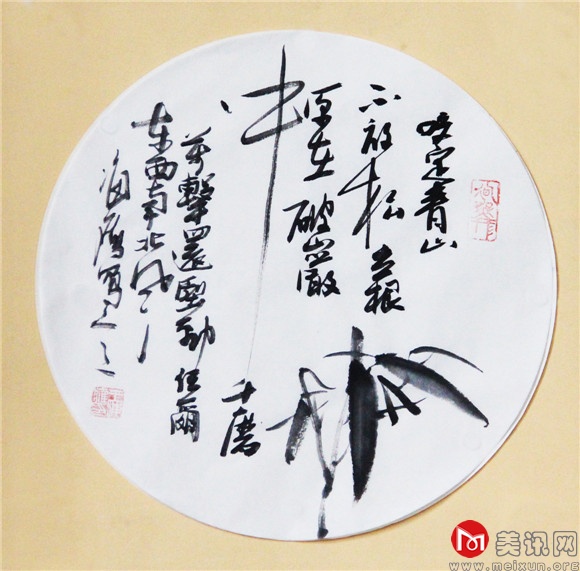 咬定青山
不放松立根
原在破巖
中千磨
万擊還堅劲任爾
东西南北风
海鹰写
美讯网
www.meixun.org